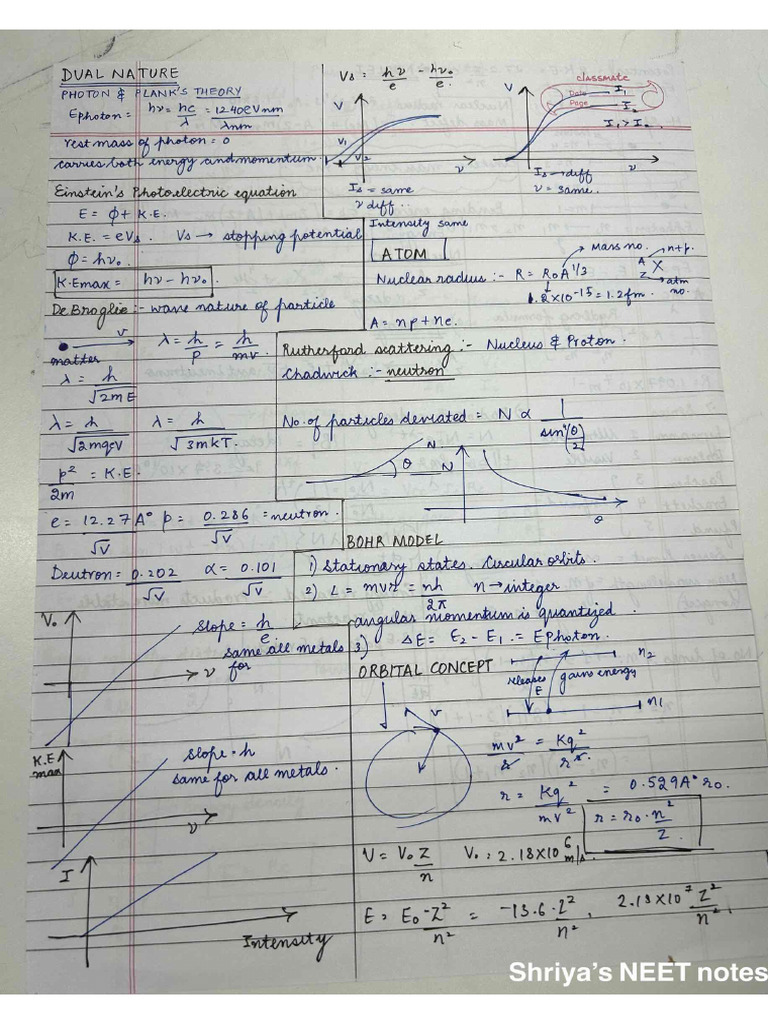 DUAL NATURE
PHOTON & PLANK'S THEORY
Ephoton = hν = hc/λ = 1240eVnm/λnm
rest mass of photon = 0
carries both energy and momentum.
Einstein's Photoelectric equation
E = ϕ + K.E.
K.E. = eVs. Vs → stopping potential
ϕ = hν₀.
K.Emax = hν - hν₀.
De Broglie :- wave nature of particle
v
matter
λ = h/P = h/mv.
λ = h/√2mE
λ = h/√2mqcV λ = h/√3mKT.
p²/2m = K.E.
e = 12.27A°/√V p = 0.286/√V = neutron.
Deutron = 0.202/√V α = 0.101/√V
V₀
slope = h/e.
same all metals
for
ν
K.E max
slope = h
same for all metals.
ν
I
Intensity
Vs = hν/e - hν₀/e.
V
ν₁
ν₂
ν
Is = same
ν diff..
Intensity same
classmate
Date
Page
V
I₁
I₂
I₁ > I₂
ν
Is → diff
ν = same.
ATOM
Mass no.
n+p.
A
X
Z
atm no.
Nuclear radius :- R = R₀A^1/3
1.2×10⁻¹⁵ = 1.2fm.
A = np + ne.
Rutherford scattering :- Nucleus & Proton.
Chadwick :- neutron
No. of particles deviated = N α 1/sin⁴(θ/2)
N
θ
N
θ
BOHR MODEL
1) Stationary states. Circular orbits.
2) L = mvr = nh/2π n → integer
angular momentum is quantized
3) ΔE = E₂ - E₁ = Ephoton.
ORBITAL CONCEPT
n₂
releases E
gains energy
n₁
v
mv²/r = Kq²/r²
r = Kq²/mv² = 0.529A° r₀.
r = r₀.n²/Z.
V = V₀ Z/n V₀ = 2.18×10⁶ m/s.
E = E₀ -Z²/n² = -13.6.Z²/n², 2.18×10⁷ Z²/n².
Shriya's NEET notes